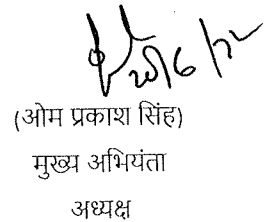 20/6/22
(ओम प्रकाश सिंह)
मुख्य अभियंता
अध्यक्ष